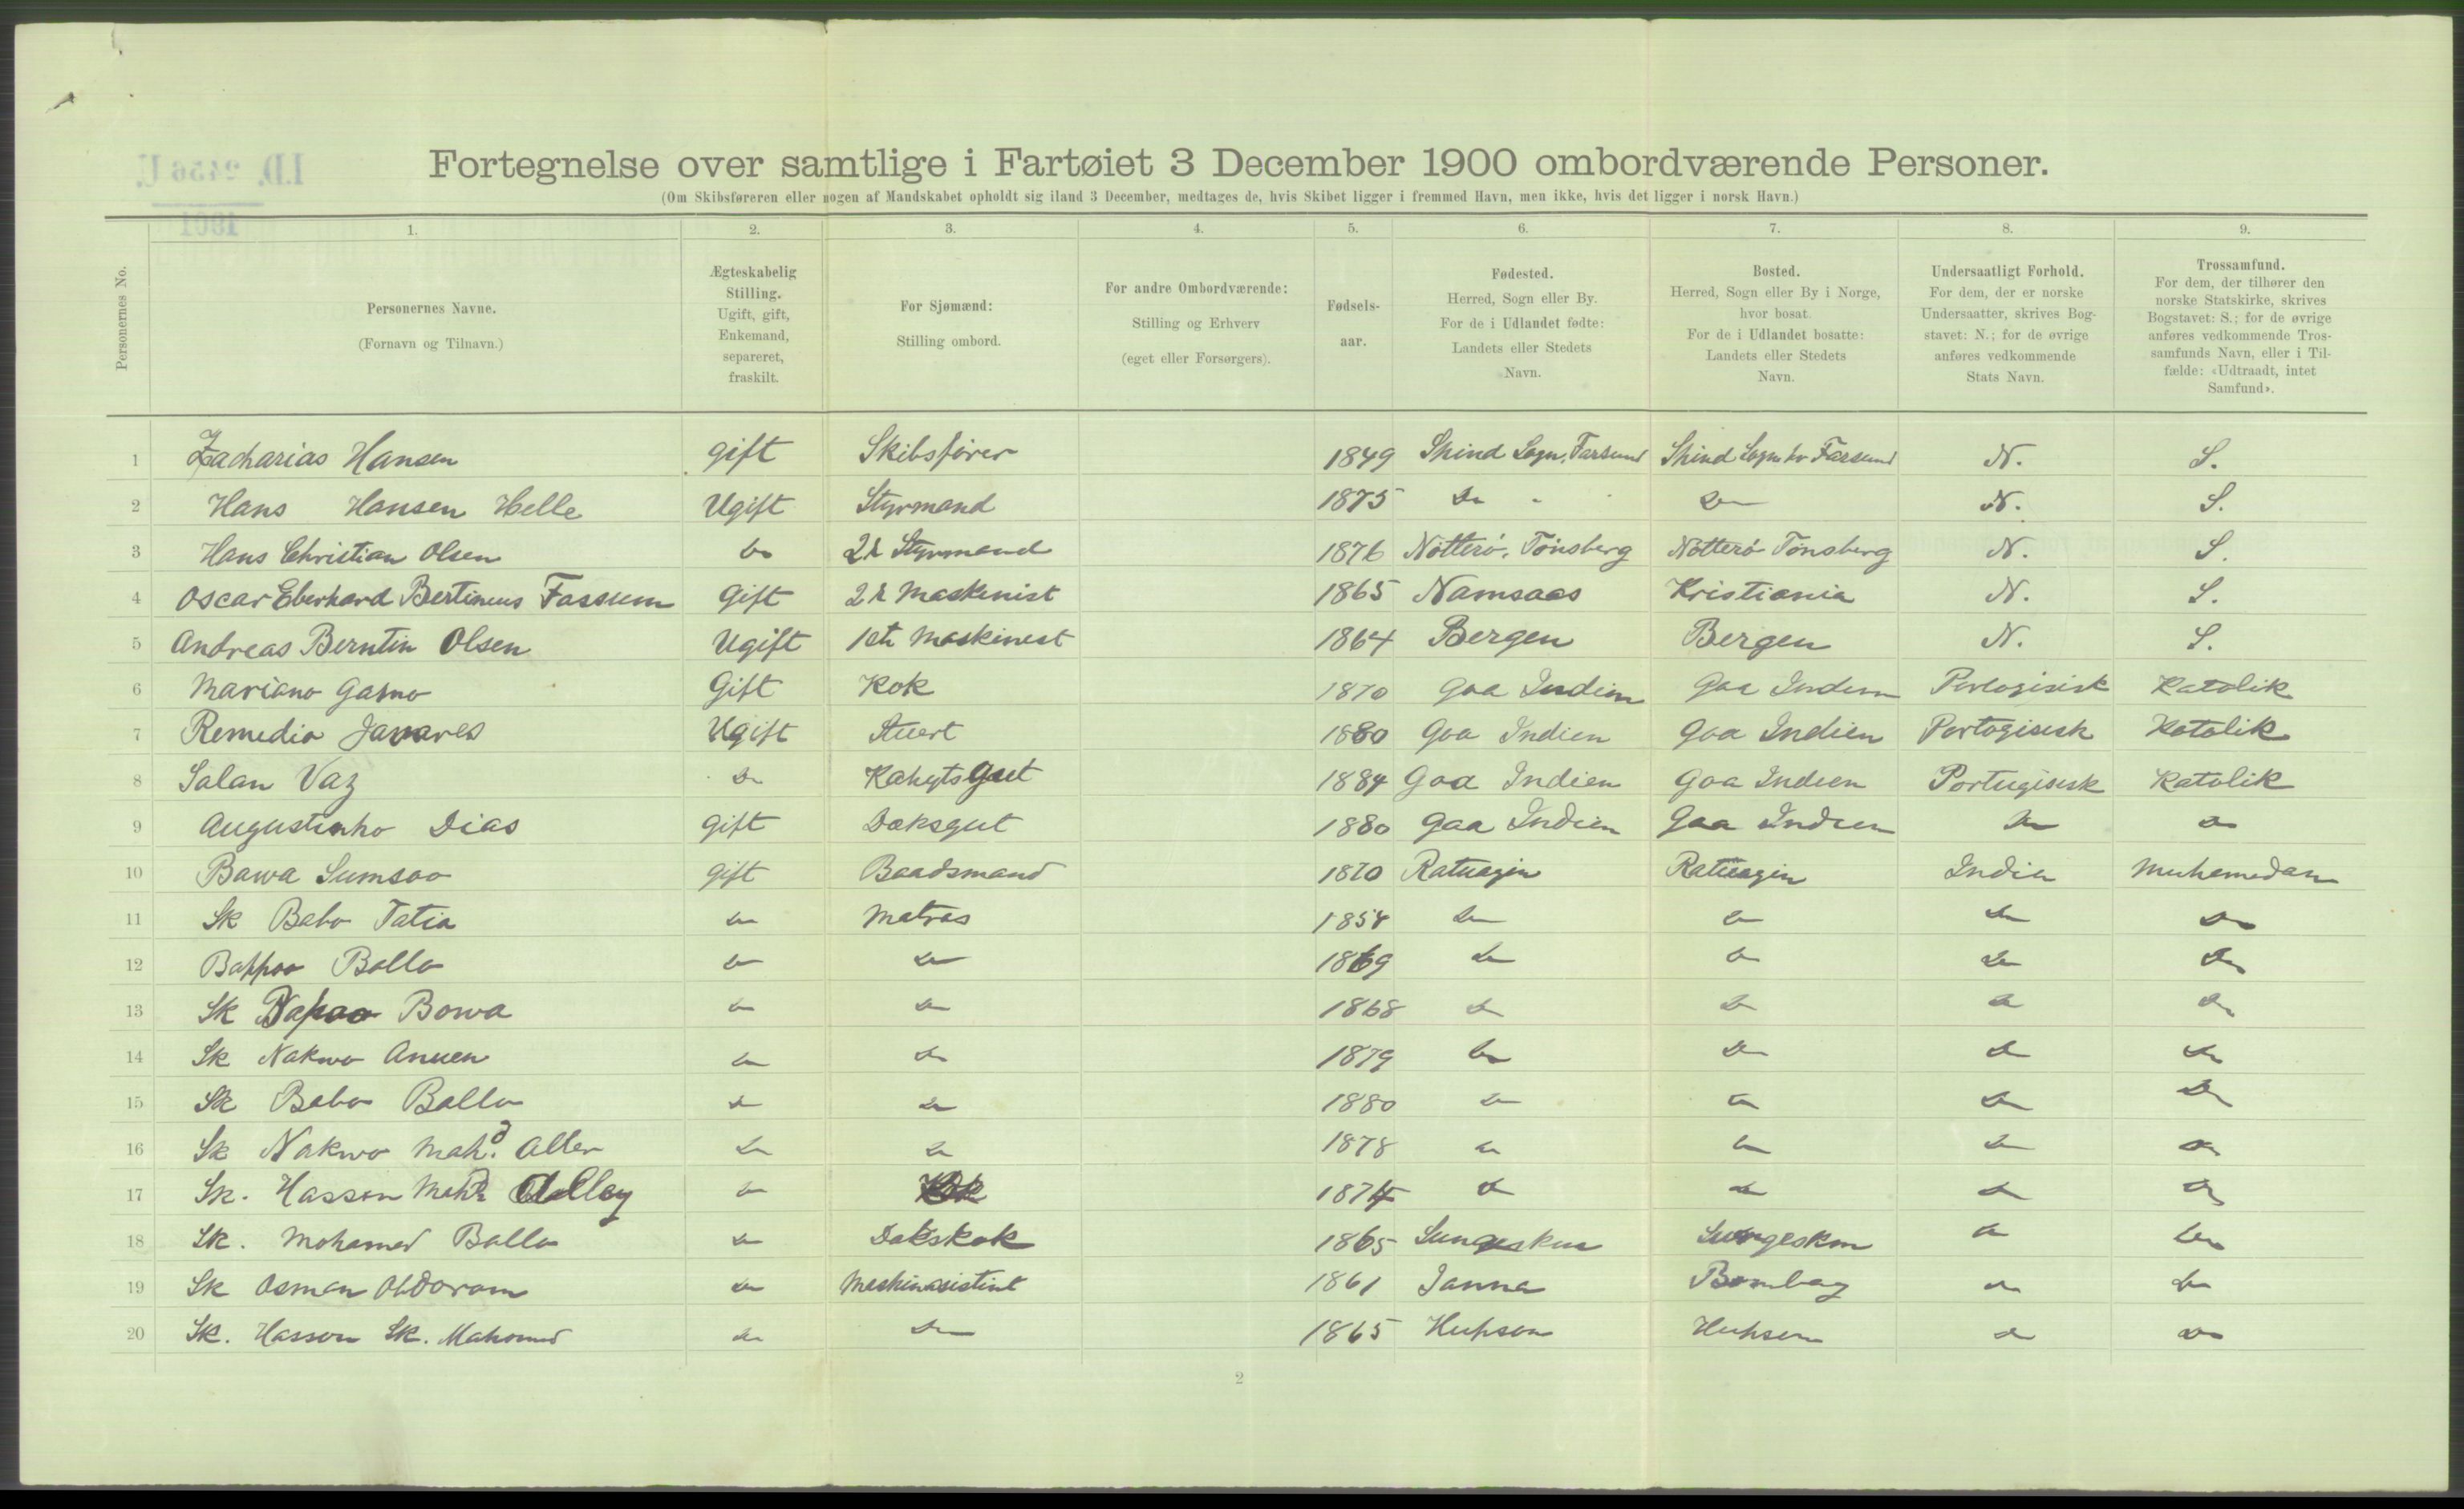 Fortegnelse over samtlige i Fartøiet 3 December 1900 ombordværende Personer.
(Om Skibsføreren eller nogen af Mandskabet opholdt sig iland 3 December, medtages de, hvis Skibet ligger i fremmed Havn, men ikke, hvis det ligger i norsk Havn.)
I.D. 2456 U.
1901
1. 2. 3. 4. 5. 6. 7. 8. 9.
Personernes No.
Personernes Navne.
(Fornavn og Tilnavn.)
Ægteskabelig
Stilling.
Ugift, gift,
Enkemand,
separeret,
fraskilt.
For Sjømænd:
Stilling ombord.
For andre Ombordværende:
Stilling og Erhverv
(eget eller Forsørgers).
Fødsels-
aar.
Fødested.
Herred, Sogn eller By.
For de i Udlandet fødte:
Landets eller Stedets
Navn.
Bosted.
Herred, Sogn eller By i Norge,
hvor bosat.
For de i Udlandet bosatte:
Landets eller Stedets
Navn.
Undersaatligt Forhold.
For dem, der er norske
Undersaatter, skrives Bog-
stavet: N.; for de øvrige
anføres vedkommende
Stats Navn.
Trossamfund.
For dem, der tilhører den
norske Statskirke, skrives
Bogstavet: S.; for de øvrige
anføres vedkommende Tros-
samfunds Navn, eller i Til-
fælde: «Udtraadt, intet
Samfund».
1 Zacharias Hansen gift Skibsfører 1849 Spind Sogn, Farsund Spind Sogn Farsund N. S.
2 Hans Hansen Helle Ugift Styrmand 1875 Do Do N. S.
3 Hans Christian Olsen Do 2d Styrmand 1876 Nötterö, Tönsberg Nötterö Tönsberg N. S.
4 Oscar Eberhard Bertineus Fossum Gift 2d Maskinist 1865 Namsaas Kristiania N. S.
5 Andreas Berntin Olsen Ugift 1ste Maskinest 1864 Bergen Bergen N. S.
6 Mariano Gasmo Gift Kok 1870 Goa Indien Goa Indien Portogisisk Katolik
7 Remedio Javares Ugift Stuert 1880 Goa Indien Goa Indien Portogisisk Katolik
8 Salan Vaz Do Kahytsgut 1884 Goa Indien Goa Indien Portugisisk Katolik
9 Augustinho Dias gift Dæksgut 1880 Goa Indien Goa Indien Do Do
10 Bawa Sumsoo gift Baadsmand 1870 Ratnagin Ratnagin India Muhamedan
11 Sk Babo Tatia Do Matros 1858 Do Do Do Do
12 Bappoo Ballo Do Do 1869 Do Do Do Do
13 Sk Bowa Do Do 1868 Do Do Do Do
14 Sk Nakwo Do Do 1879 Do Do Do Do
15 Sk Babo Ballo Do Do 1880 Do Do Do Do
16 Sk Nakwo Mahd. Aller Do Do 1878 Do Do Do Do
17 Sk. Hasson Mahd Alley Do 1874 Do Do Do Do
18 Sk. Mohamed Ballo Do Dækskok 1865 Do Do
19 Sk Osman Abdoram Do Maskinasistint 1861 Janna Bombay Do Do
20 Sk. Hasson Sk. Mahomed Do Do 1865 Hupson Hupson Do Do
2